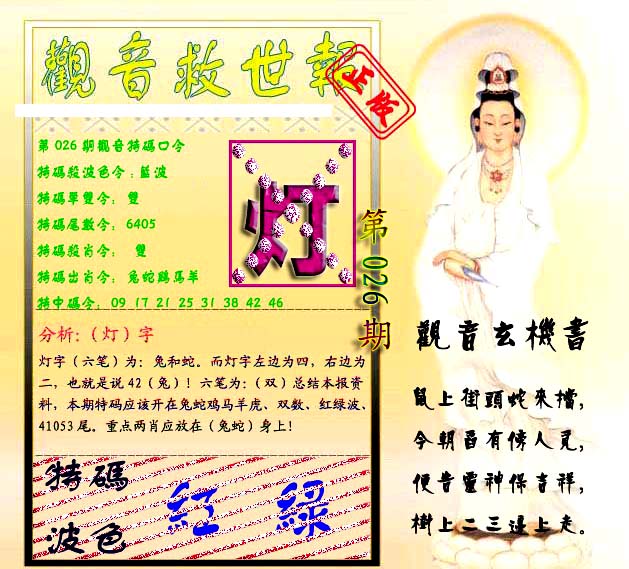 觀音救世報
正版
第026期觀音特碼口令
特碼殺波色令:藍波
特碼單雙令: 雙
特碼尾數令: 6405
特碼殺肖令: 雙
特碼出肖令: 兔蛇鷄馬羊
特中碼令: 09 17 21 25 31 38 42 46
灯
第026期
分析:(灯)字
灯字(六笔)为:兔和蛇。而灯字左边为四,右边为
二,也就是说42(兔)!六笔为:(双)总结本报资
料,本期特码应该开在兔蛇鸡马羊虎、双数、红绿波、
41053尾。重点两肖应放在(兔蛇)身上!
特碼
波色
紅 綠
觀音玄機書
鼠上街頭蛇來擋,
今朝酉有傍人見,
便音靈神保吉祥,
樹上二三邊上走。